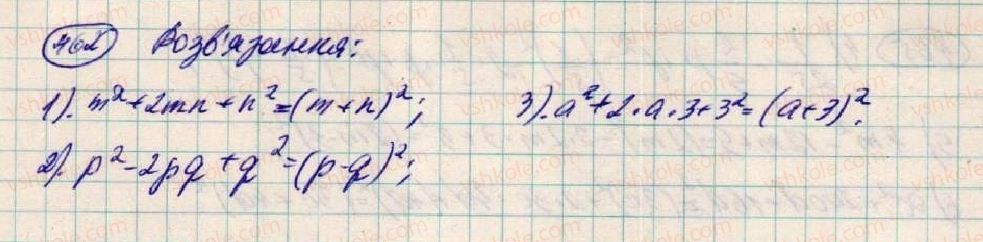 462 Розв'язання:
1). m²+2mn+n²=(m+n)²;
3). a²+2·a·3+3²=(a+3)².
2). p²-2pq+q²=(p-q)²;